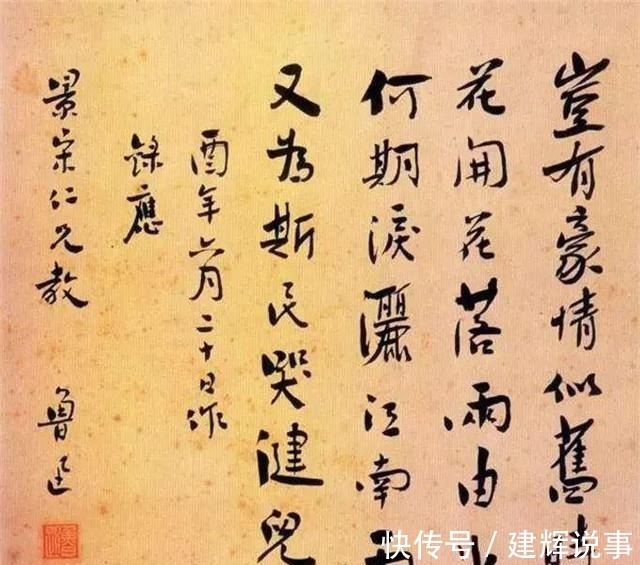 豈有豪情似舊時
花開花落兩由
何期淚灑江南雨
又為斯民哭健兒
酉年六月二十日作
錄應
景宋仁兄教
魯迅
快传号 / 建辉说事